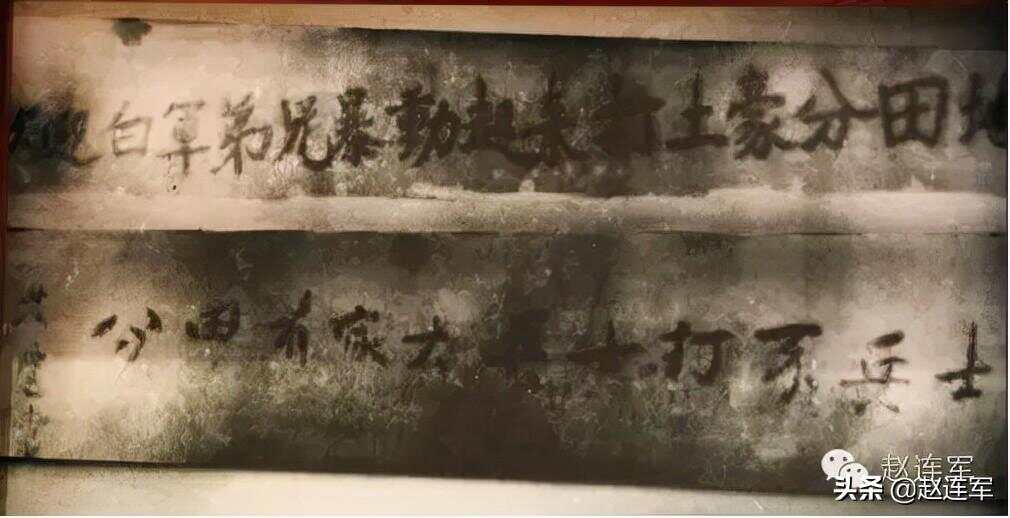 欢迎白軍弟兄暴動起来打土豪分田地
士兵不打士兵大家有田分
赵连军
头条 @赵连军